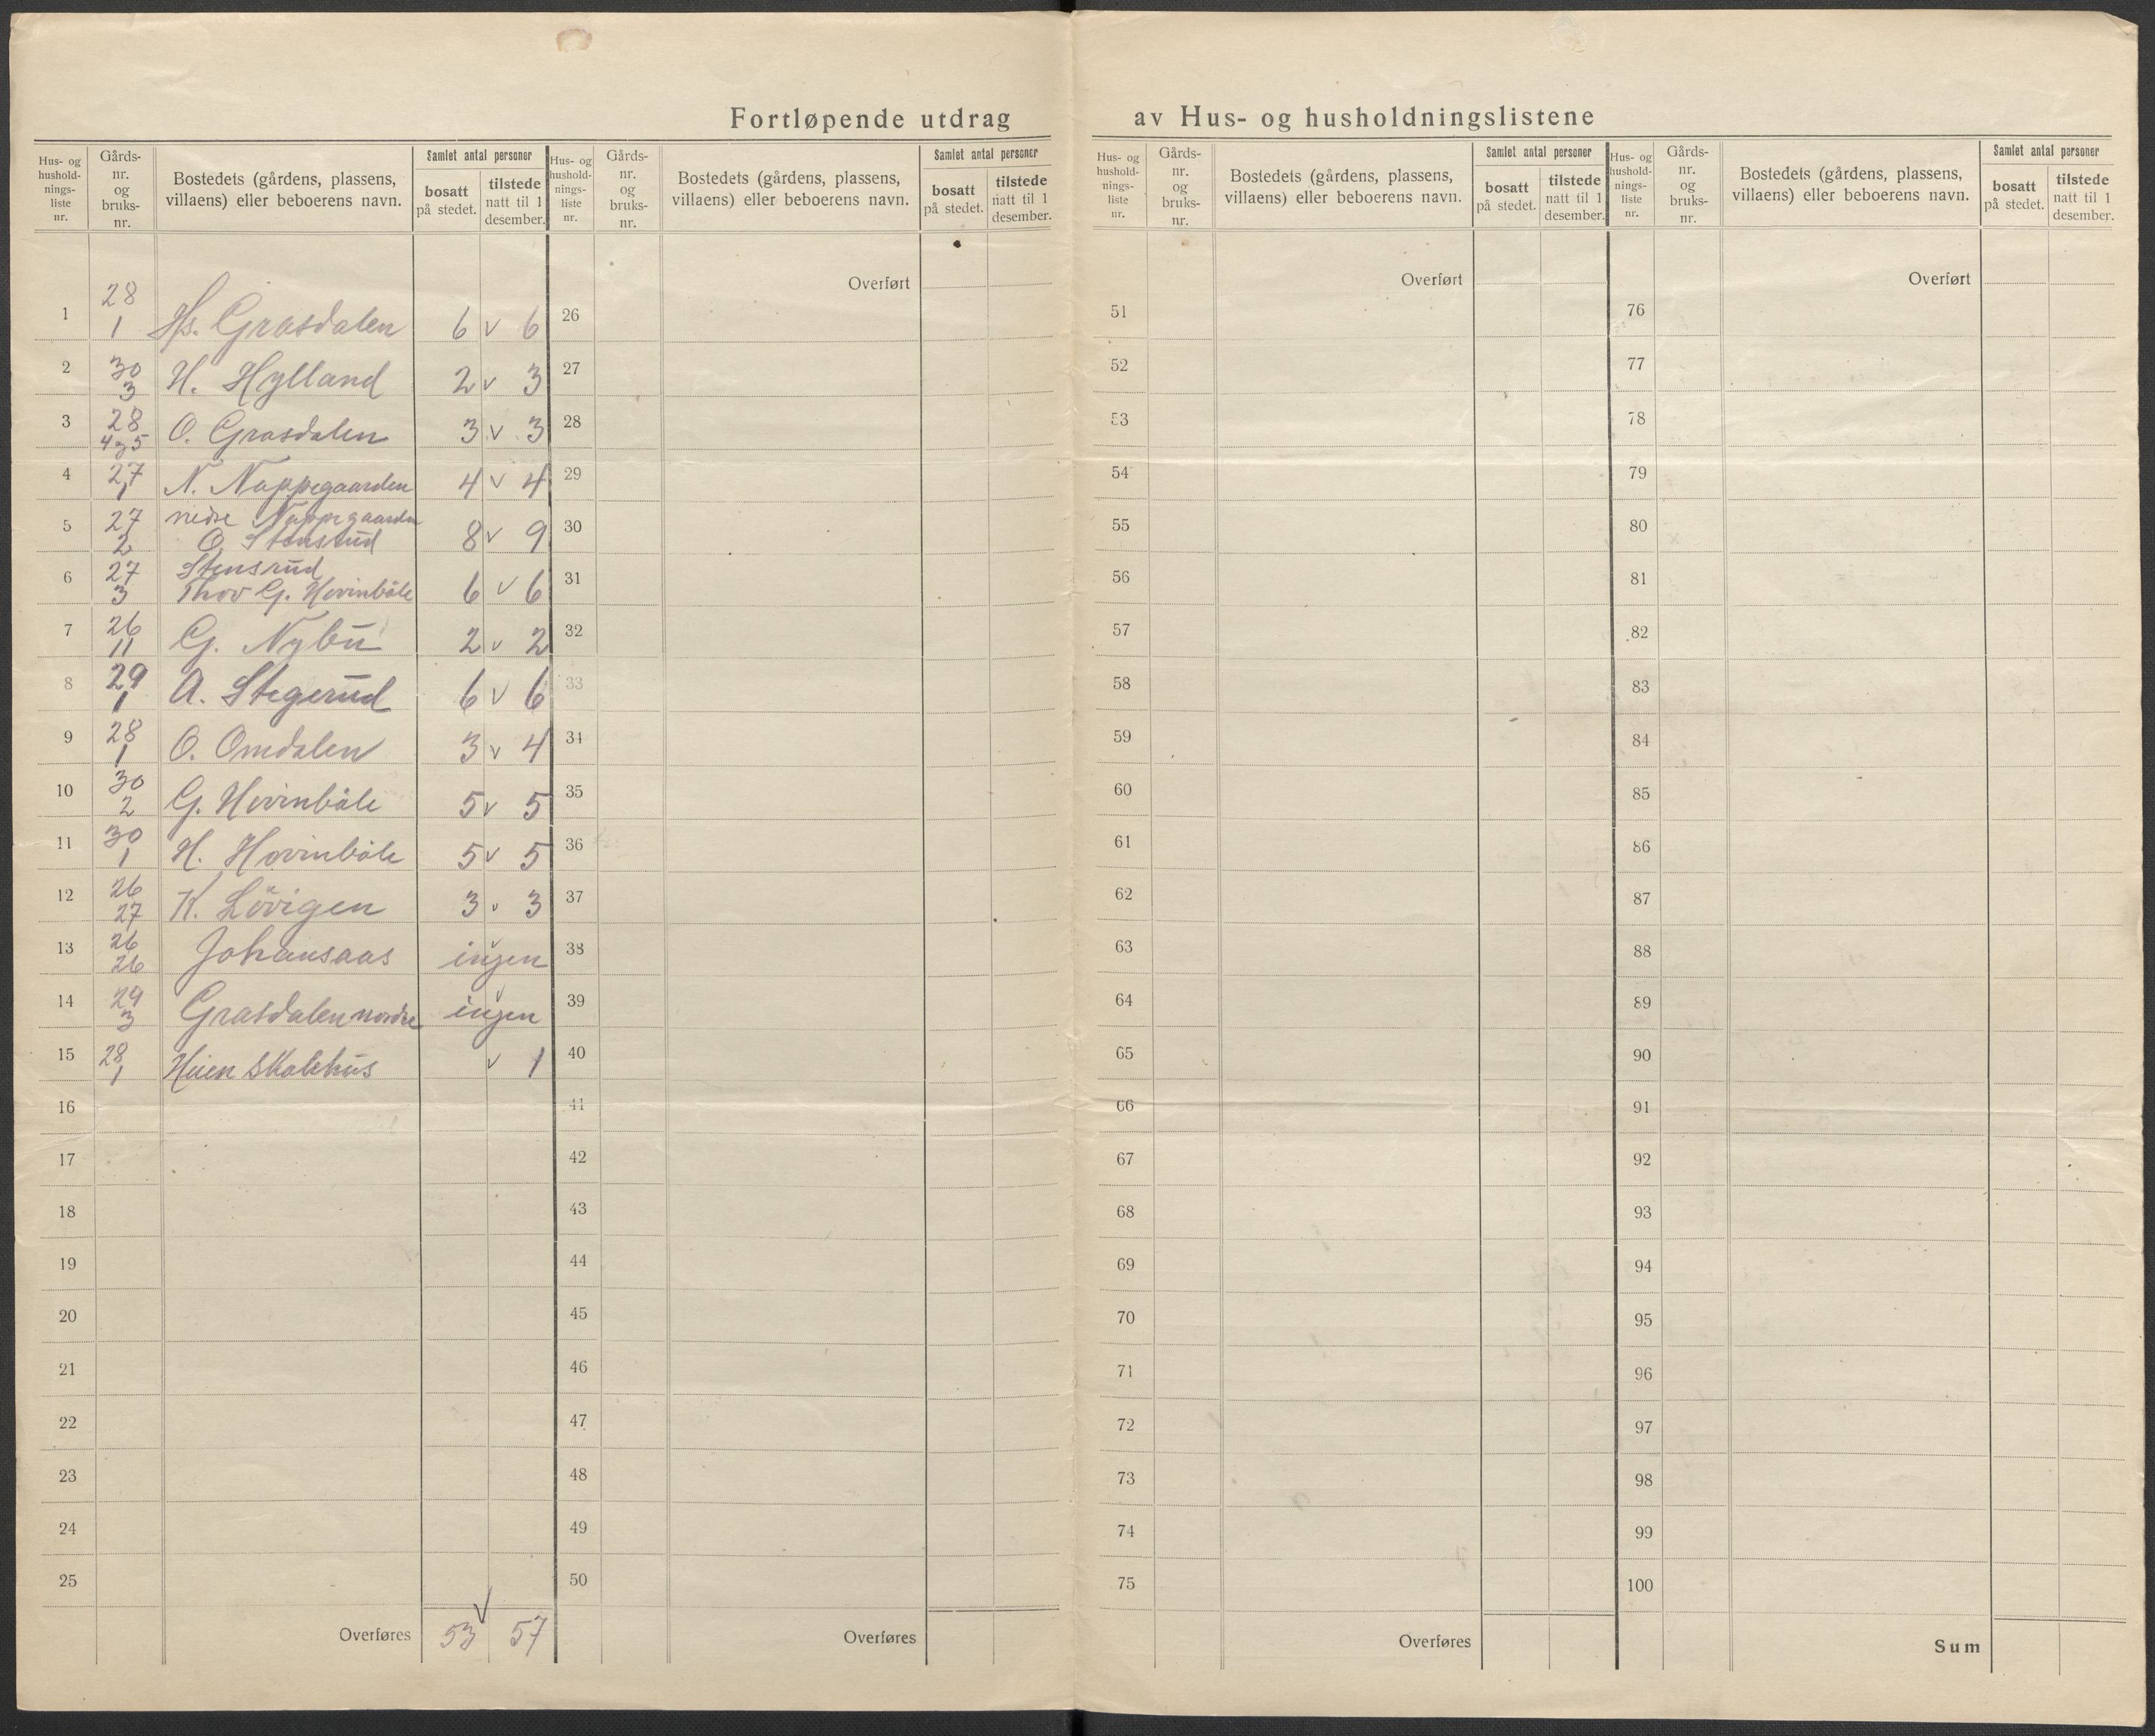 Fortløpende utdrag av Hus- og husholdningslistene
Hus- og hushold-nings-liste nr. Gårds-nr. og bruks-nr. Bostedets (gårdens, plassens, villaens) eller beboerens navn. Samlet antal personer bosatt på stedet. tilstede natt til 1 desember.
1 28 1 Hs. Grasdalen 6 v 6
2 30 3 H. Hylland 2 v 3
3 28 4 og 5 O. Grasdalen 3 v 3
4 27 1 N. Nappegaarden 4 v 4
5 27 2 nedre Nappegaarden
O. Stensrud 8 v 9
6 27 3 Stensrud
Thov G. Hovinbøle 6 v 6
7 26 11 G. Nybu 2 v 2
8 29 1 A. Stegerud 6 v 6
9 28 1 O. Omdalen 3 v 4
10 30 2 G. Hovinbøle 5 v 5
11 30 1 H. Hovinbøle 5 v 5
12 26 27 K. Lövigen 3 v 3
13 26 26 Johansaas ingen
14 29 3 Grasdalen nordre ingen
15 28 1 Huen skolehus v 1
16
17
18
19
20
21
22
23
24
25
Overføres 53 57
Hus- og hushold-nings-liste nr. Gårds-nr. og bruks-nr. Bostedets (gårdens, plassens, villaens) eller beboerens navn. Samlet antal personer bosatt på stedet. tilstede natt til 1 desember.
Overført
26
27
28
29
30
31
32
33
34
35
36
37
38
39
40
41
42
43
44
45
46
47
48
49
50
Overføres
Hus- og hushold-nings-liste nr. Gårds-nr. og bruks-nr. Bostedets (gårdens, plassens, villaens) eller beboerens navn. Samlet antal personer bosatt på stedet. tilstede natt til 1 desember.
Overført
51
52
53
54
55
56
57
58
59
60
61
62
63
64
65
66
67
68
69
70
71
72
73
74
75
Overføres
Hus- og hushold-nings-liste nr. Gårds-nr. og bruks-nr. Bostedets (gårdens, plassens, villaens) eller beboerens navn. Samlet antal personer bosatt på stedet. tilstede natt til 1 desember.
Overført
76
77
78
79
80
81
82
83
84
85
86
87
88
89
90
91
92
93
94
95
96
97
98
99
100
Sum